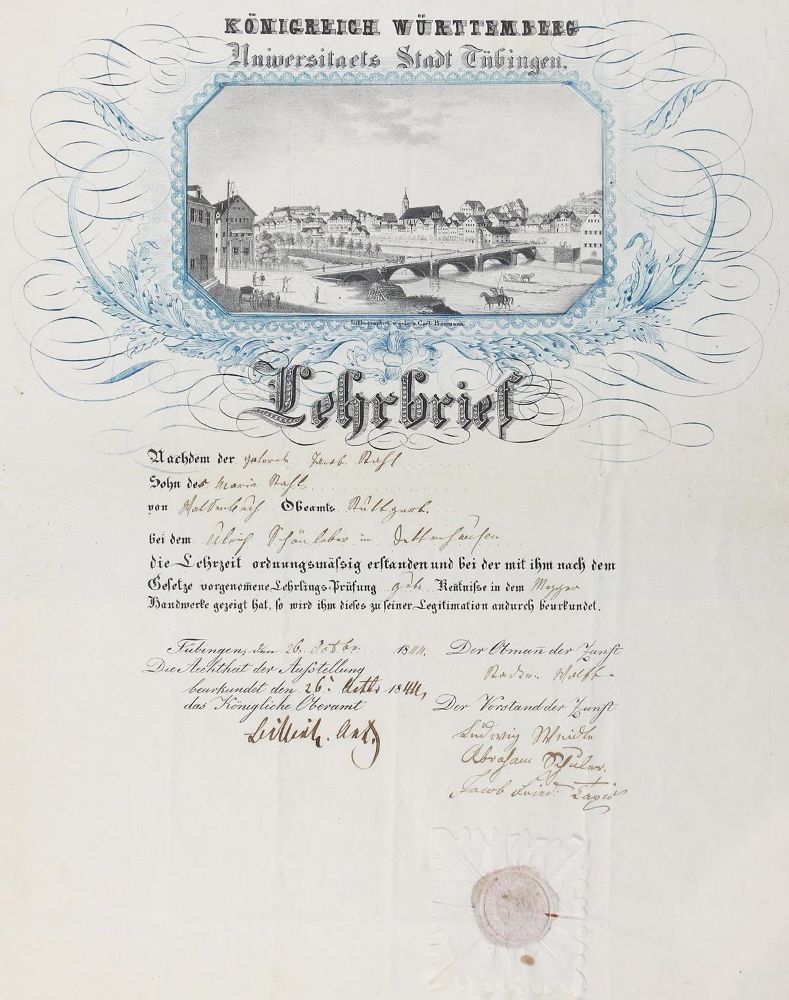 KÖNIGREICH WÜRTTEMBERG
Universitaets Stadt Tübingen.
Carl Baumann
Lehrbrief
Nachdem der Jacob Stahl
Sohn des Maria Stahl
von Waldenbuch Obeamts Stuttgart.
bei dem Ulrich Schönleber in Dettenhausen
die Lehrzeit ordnungsmässig erstanden und bei der mit ihm nach dem
Gesetze vorgenom̅ene Lehrlings-Prüfung gute Ken̅tnisse in dem Mezger
Handwerke gezeigt hat, so wird ihm dieses zu seiner Legitimation andurch beurkundet.
Tübingen, den 26. Octbr. 1844.
Die Aechtheit der Ausstellung
beurkundet den 26. Octbr 1844,
das Königliche Oberamt
Der Obman̅ der Zunft
Der Vorstand der Zunft
Ludwig Weidle
Abraham Schuler.
Jacob Fried.